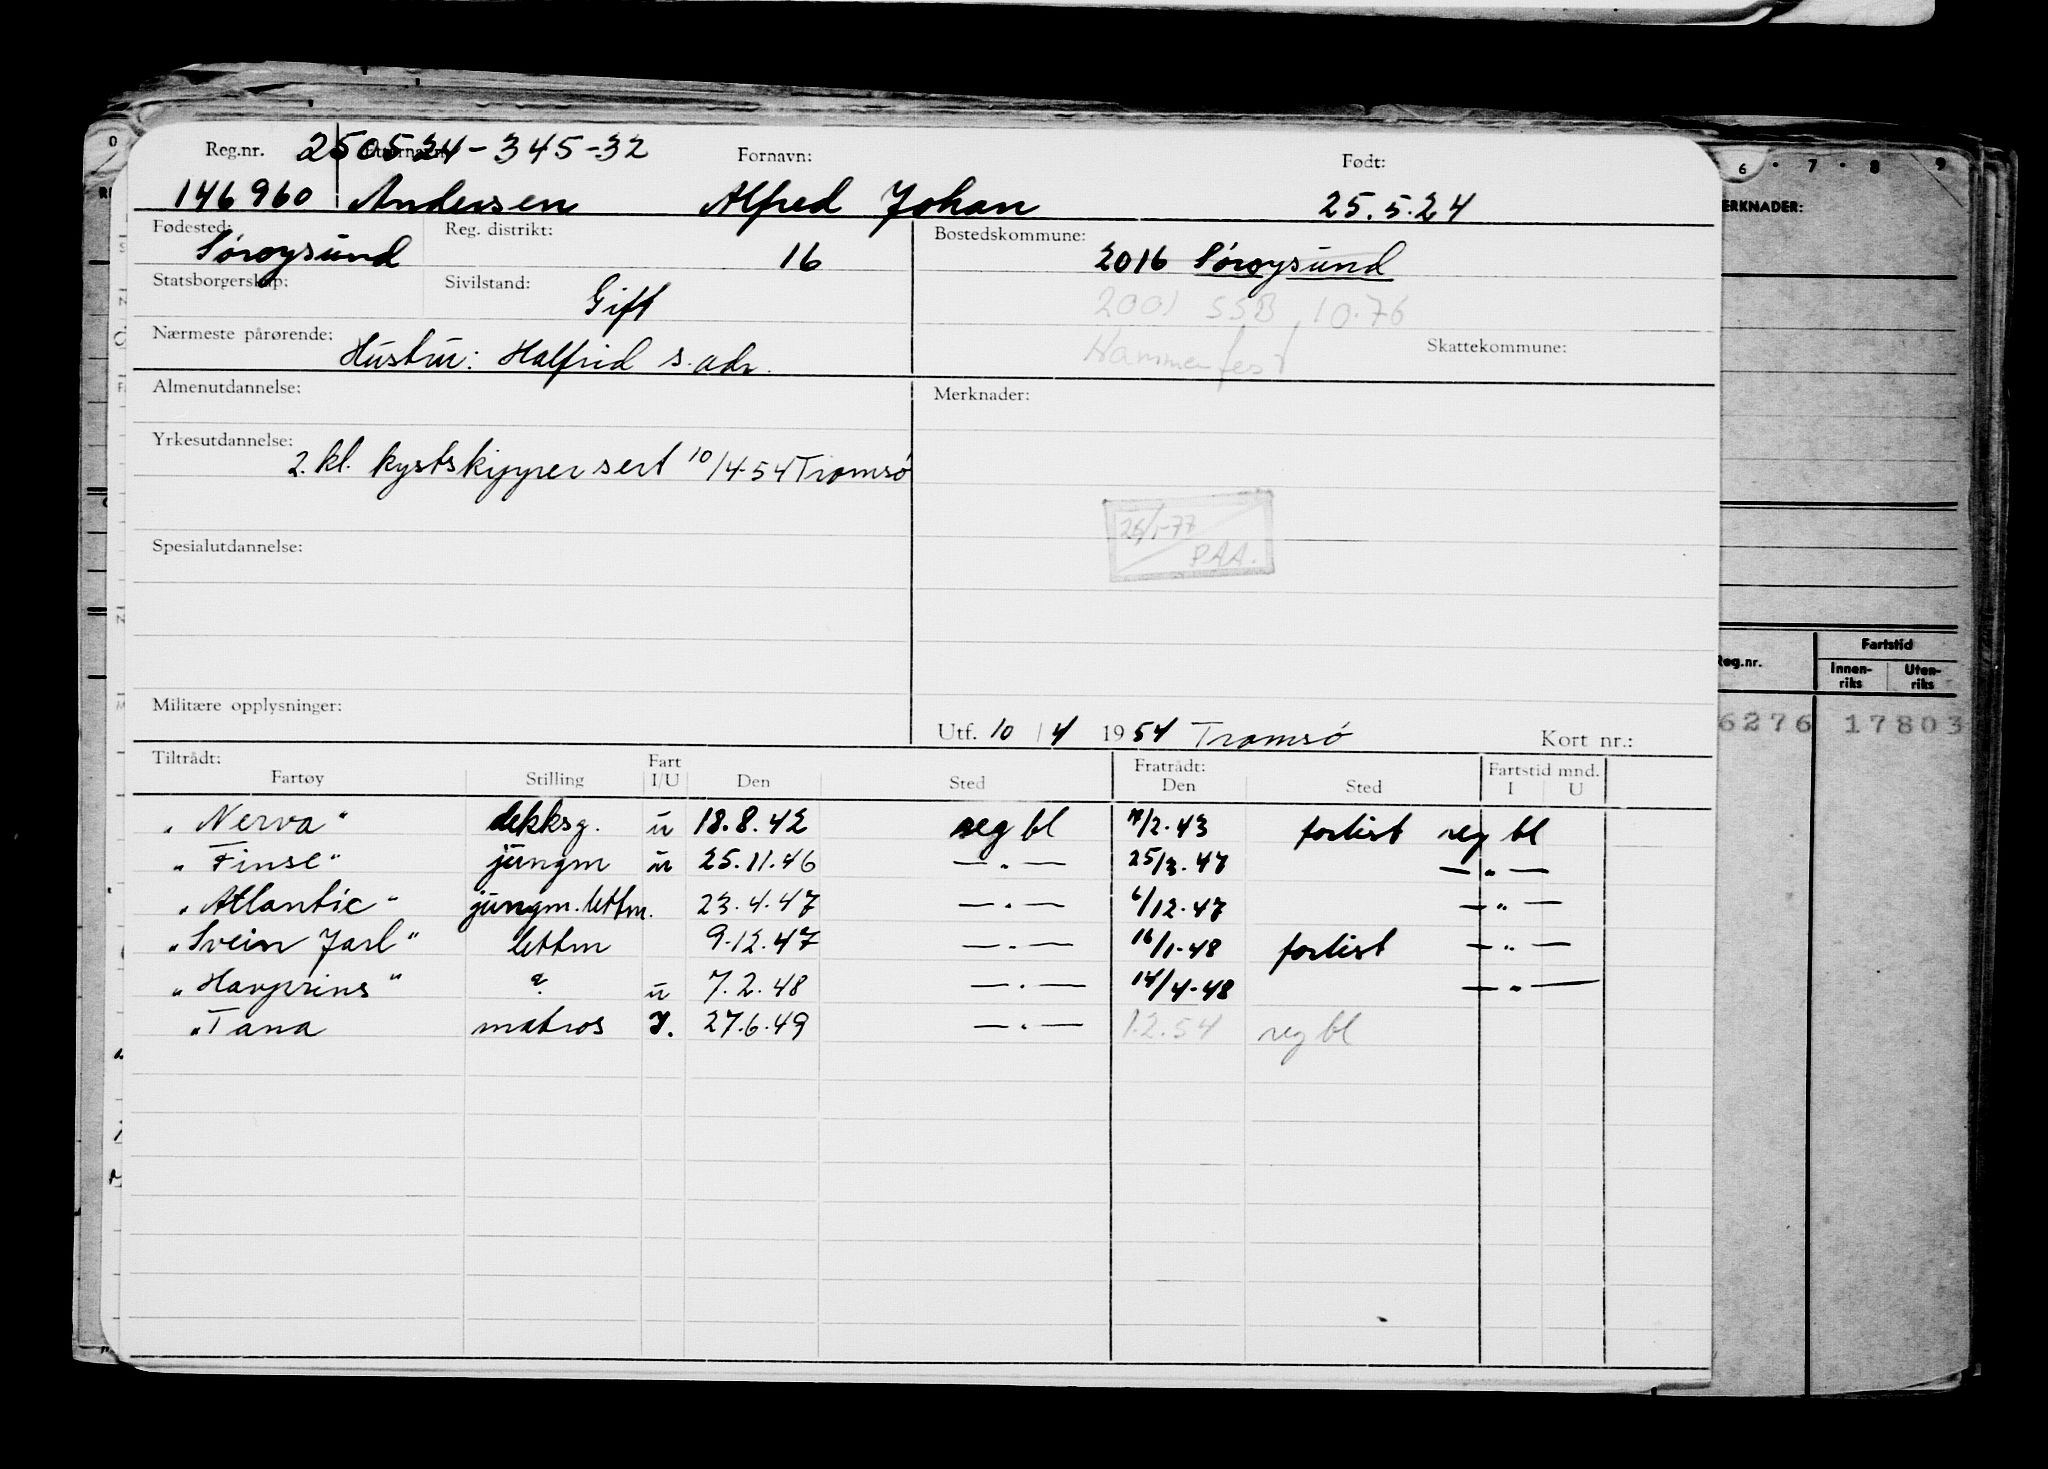 Reg.nr. 250524-345-32 Etternavn: Fornavn: Født:
146960 Andersen Alfred Johan 25.5.24
Fødested: Reg. distrikt: Bostedskommune:
Sørøysund 16 2016 Sørøysund
Statsborgerskap: Sivilstand: 2001 SSB 10.76
Gift
Nærmeste pårørende: Hammerfest Skattekommune:
Hustru: Halfrid s. adr.
Almenutdannelse: Merknader:
Yrkesutdannelse:
2. kl. kystskipper sert 10/4-54 Tromsø
Spesialutdannelse: 26/1-77
PAA.
Militære opplysninger:
Utf. 10/4 1954 Tromsø Kort nr.:
Tiltrådt: Fart Fratrådt: Fartstid mnd.
Fartøy Stilling I/U Den Sted Den Sted I U
"Nerva" dekksg. u 18.8.42 reg bl /2.43 forlist reg bl
"Finse" jungm u 25.11.46 — " — 25/3.47 — " —
"Atlantic" jungm. lettm. 23.4.47 — " — 6/12.47 — " —
"Svein Jarl" lettm 9.12.47 — " — 16/1.48 forlist — " —
"Havprins" " u 7.2.48 — " — 14/4.48 — " —
"Tana matros I. 27.6.49 — " — 1.2.54 reg bl
6 · 7 · 8 · 9
ERKNADER:
Reg.nr. Fartstid
Innen-riks Uten-riks
6276 17803